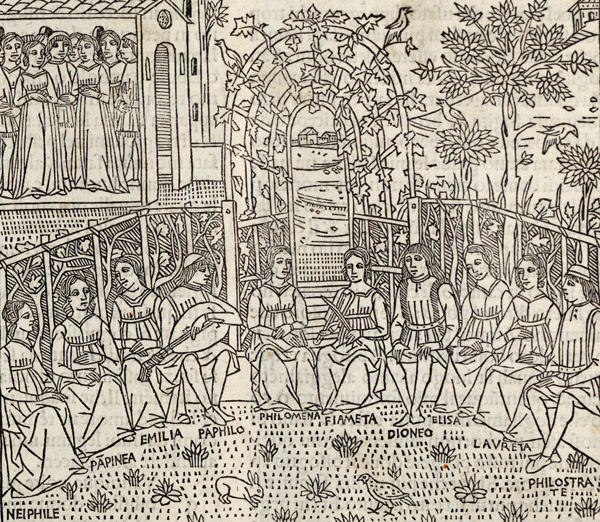 NEIPHILE
PAPINEA
EMILIA
PAPHILO
PHILOMENA
FIAMETA
DIONEO
ELISA
LAVRETA
PHILOSTRA
TE